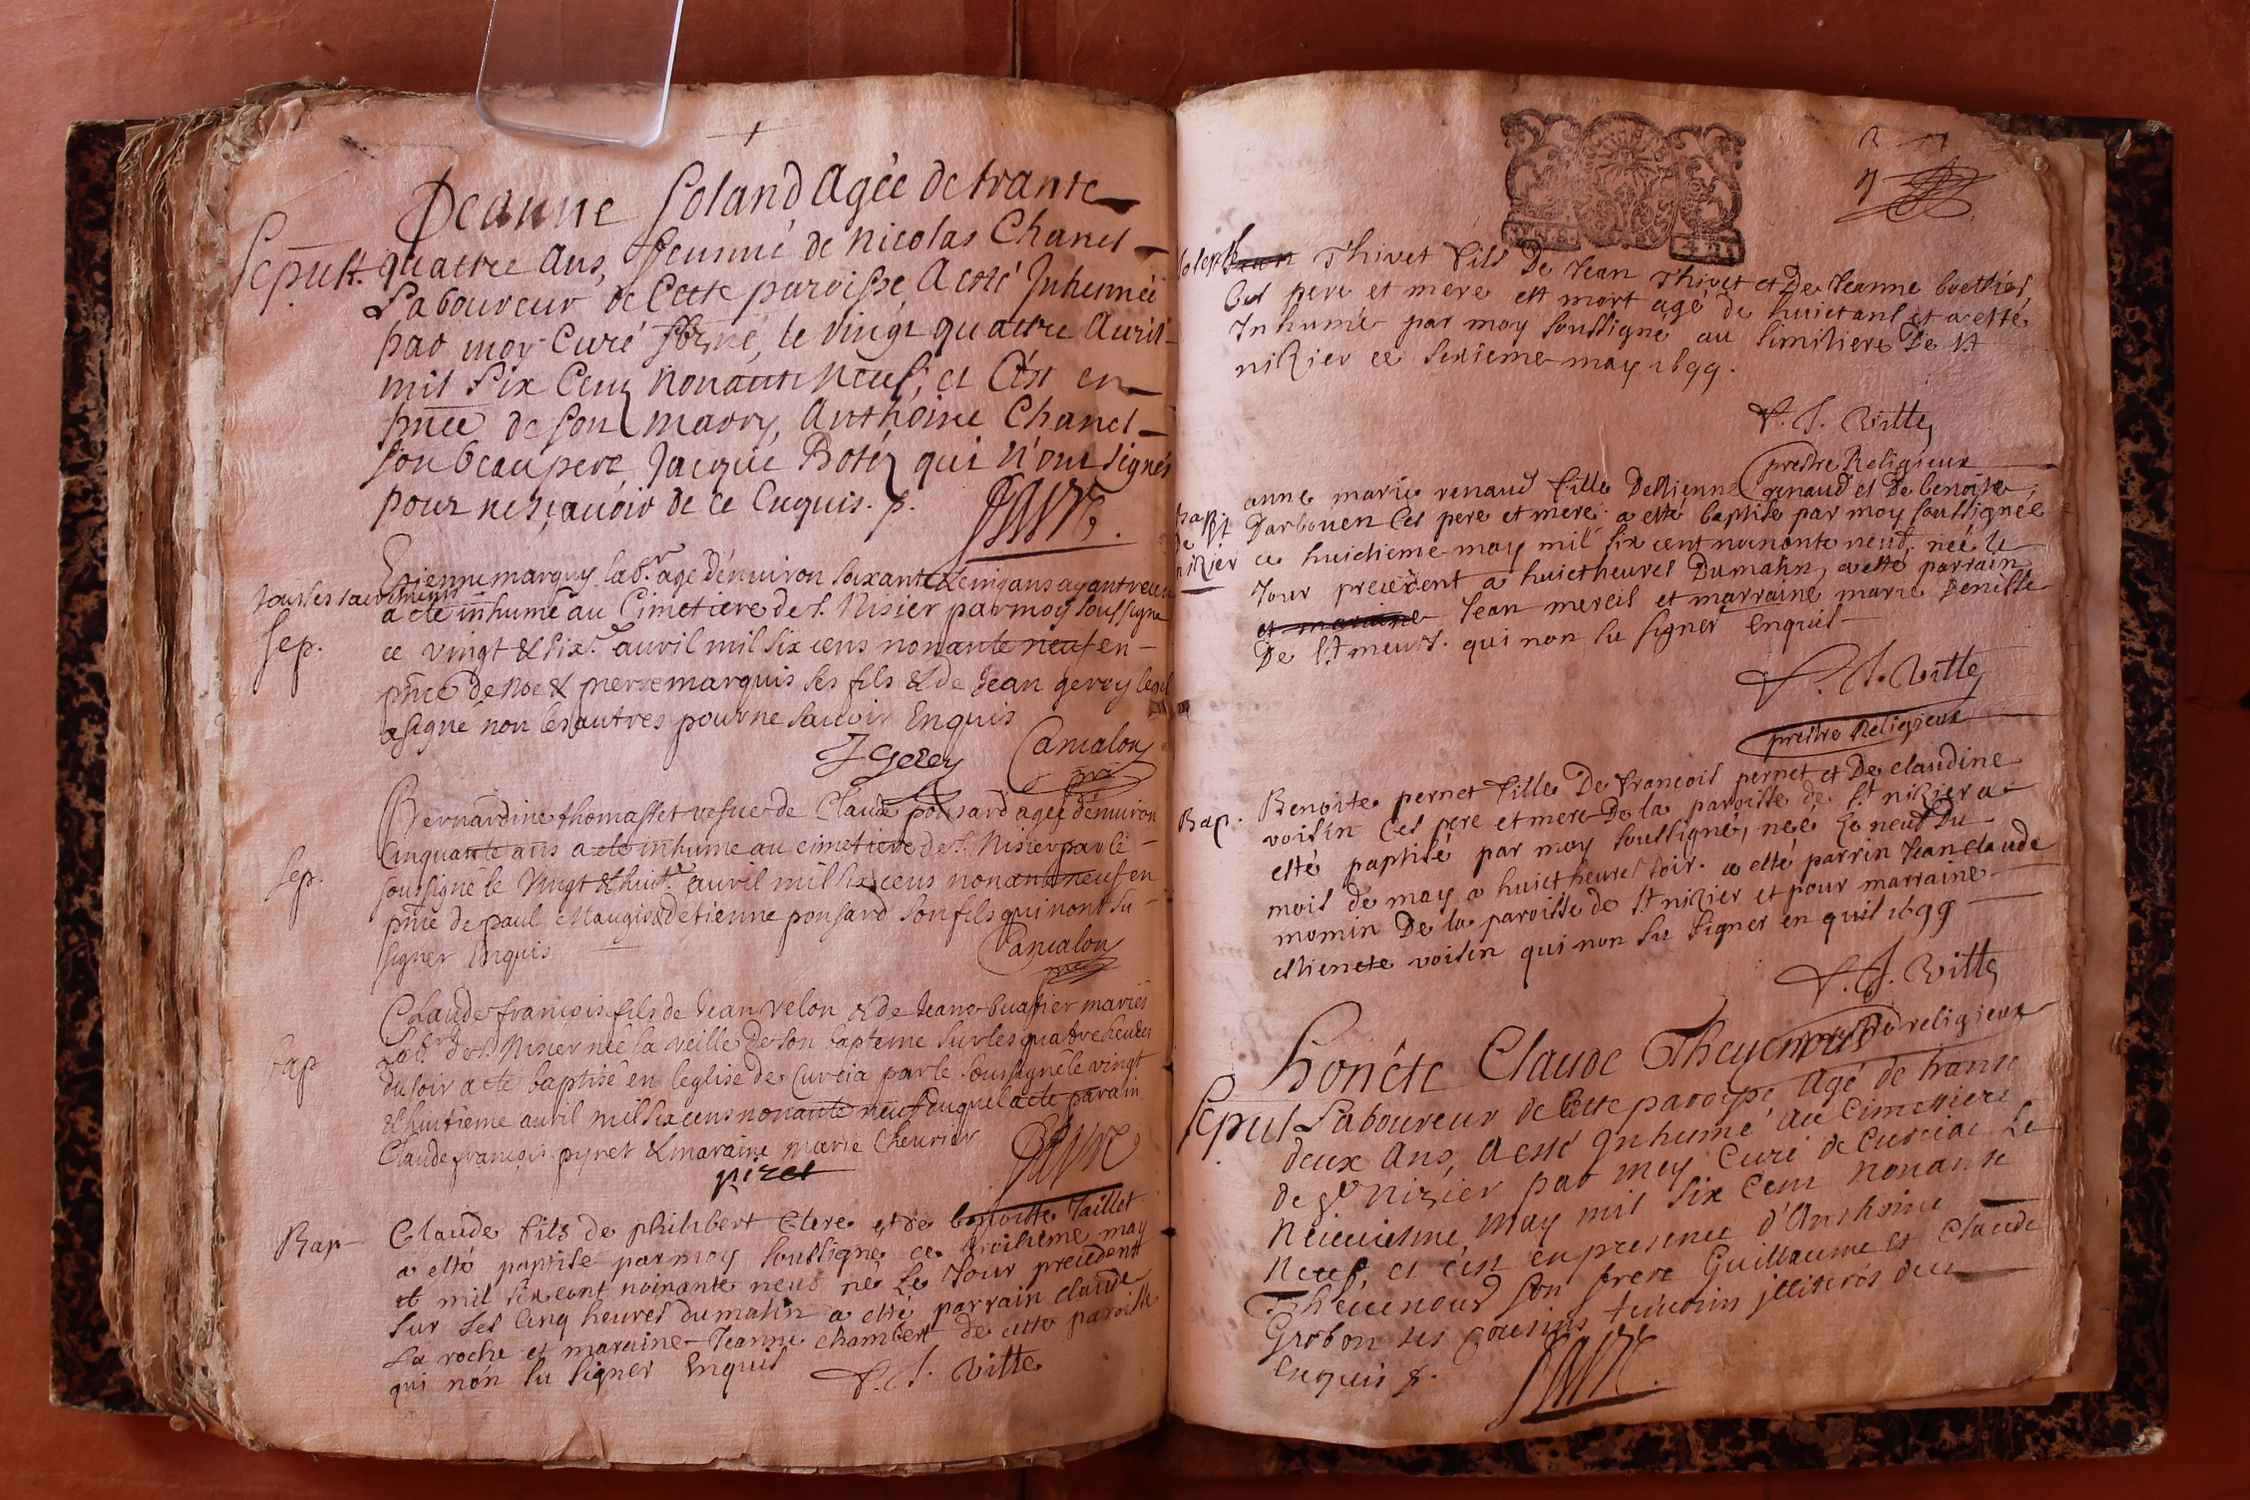 Jeanne Soland Agée de trante
Sepult. quatre Ans, femme de nicolas Chanel
Laboureur de Cette paroisse, A esté Inhumée
par moy Curé sbzné, le vingt quattre Auril
mil Six Cent Nonante neuf, et C'est en
pnce de son marry, Anthoine Chanel
son beaupere Jacque qui n'ont signés
pour ne sçauoir de ce Enquis. p.
Etienne marquy lab.r agé d'enuiron soixante & cinq ans ayant receu
tous les sacrements a eté inhumé au Cimetiere de S. Nisier par moy soussigné
Sep. ce vingt & six.e auril mil six cens nonante neuf en
pnce de Noe & pierre marquis ses fils & de Jean gerey lequel
a signé non les autres pour ne sauoir Enquis
J Gerey Camalou
Bernardine thomasset vesue de Claude ponsard agée d'enuiron
Cinquante ans a eté inhumé au cimetiere de S. Nisier par le
Sep. soussigné le Vingt & huit.e auril mil six cens nonante neuf en
pnce de paul Maugis & d'etienne ponsard son fils qui n'ont su
signer Enquis Camalou
Claude françois fils de Jean Velon & de Jeane buatier mariés
bap Lab.rs de S. Nisier né la veille de son bapteme sur les quatre heures
du soir a eté baptisé en l'eglise de Curcia par le soussigné le vingt
& huitieme auril mil six cens nonante neuf duquel a eté parain
Claude françois pyret & maraine marie Cheurier
piret
Bap Claude fils de philibert Clere et de benoitte Taillet
a esté paptisé par moy soussigné ce troisieme may
mil six cent noinante neuf né Le Jour precedent
sur les Cinq heures du matin a esté parrain claude
La roche et maraine Jeanne chambert de cette paroisse
qui non su signer Enquis
F. J. Vitte
Joseph Thivet fils De Jean Thivet et De Jeanne
ces pere et mere est mort agé de huict ans et a esté
Inhumé par moy soussigné au simitiere De st
niZier ce sixieme may 1699.
F. J. Vitte
prestre Religieux
anne marie renaud fille D'estienne renaud et De benoite
Bapt Darbouen Ces pere et mere a esté baptisé par moy soussignée
de niZier ce huictieme may mil six cent noinante neuf, née le
Jour precedent a huict heures Du matin, a esté parrain
et maraine Jean mercis et marraine marie Denisse
De st meurt. qui non su signer Enquis
F. J. Vitte
prestre Religieux
Bap. Benoite pernet fille De francois pernet et De claudine
voisin Ces pere et mere De la paroisse de st niZier a
esté paptisé par moy soussigné, née Le neuf Du
mois de may a huict heures soir. a esté parrin Jean claude
momin De la paroisse de st niZier et pour marraine
estienete voisin qui non su signer en quis 1699
F. J. Vitte
prestre religieux
Honête Claude
Sepul Laboureur de Cette paroisse Agé de trante
deux Ans, A esté Inhumé Au Cimettiere
de st Nizier par moy Curé de Curciat Le
Neuviesme May mil six Cent nonante
Neuf, et c'est en presence d'Anthoine
son frere Guillaume et Claude
Grobon ses Cousins temoins jlliterés deu
Enquis p.